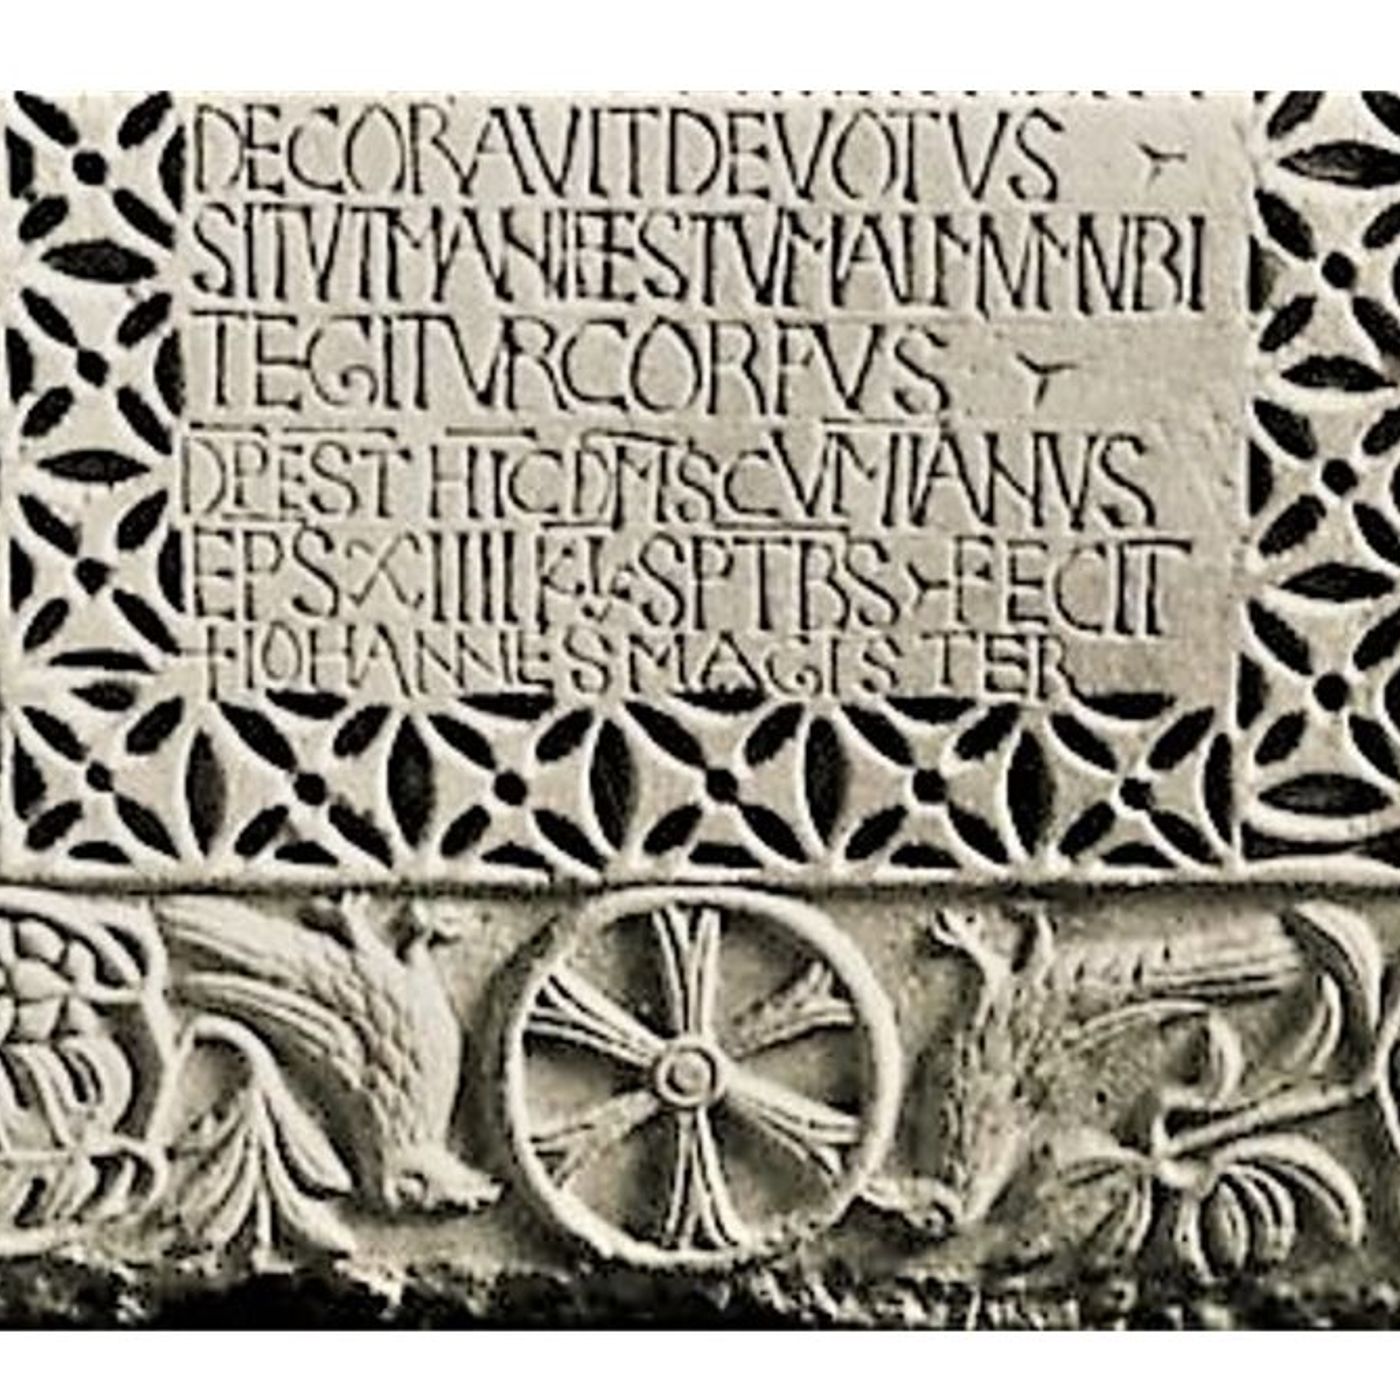 DECORAVITDEVOTVS
SITVTMANIFESTVMALMVMVBI
TEGITVRCORPVS
DPEST HICDMSCVMIANVS
EPSXIIIIKLSPTBS FECIT
IOHANNESMAGISTER